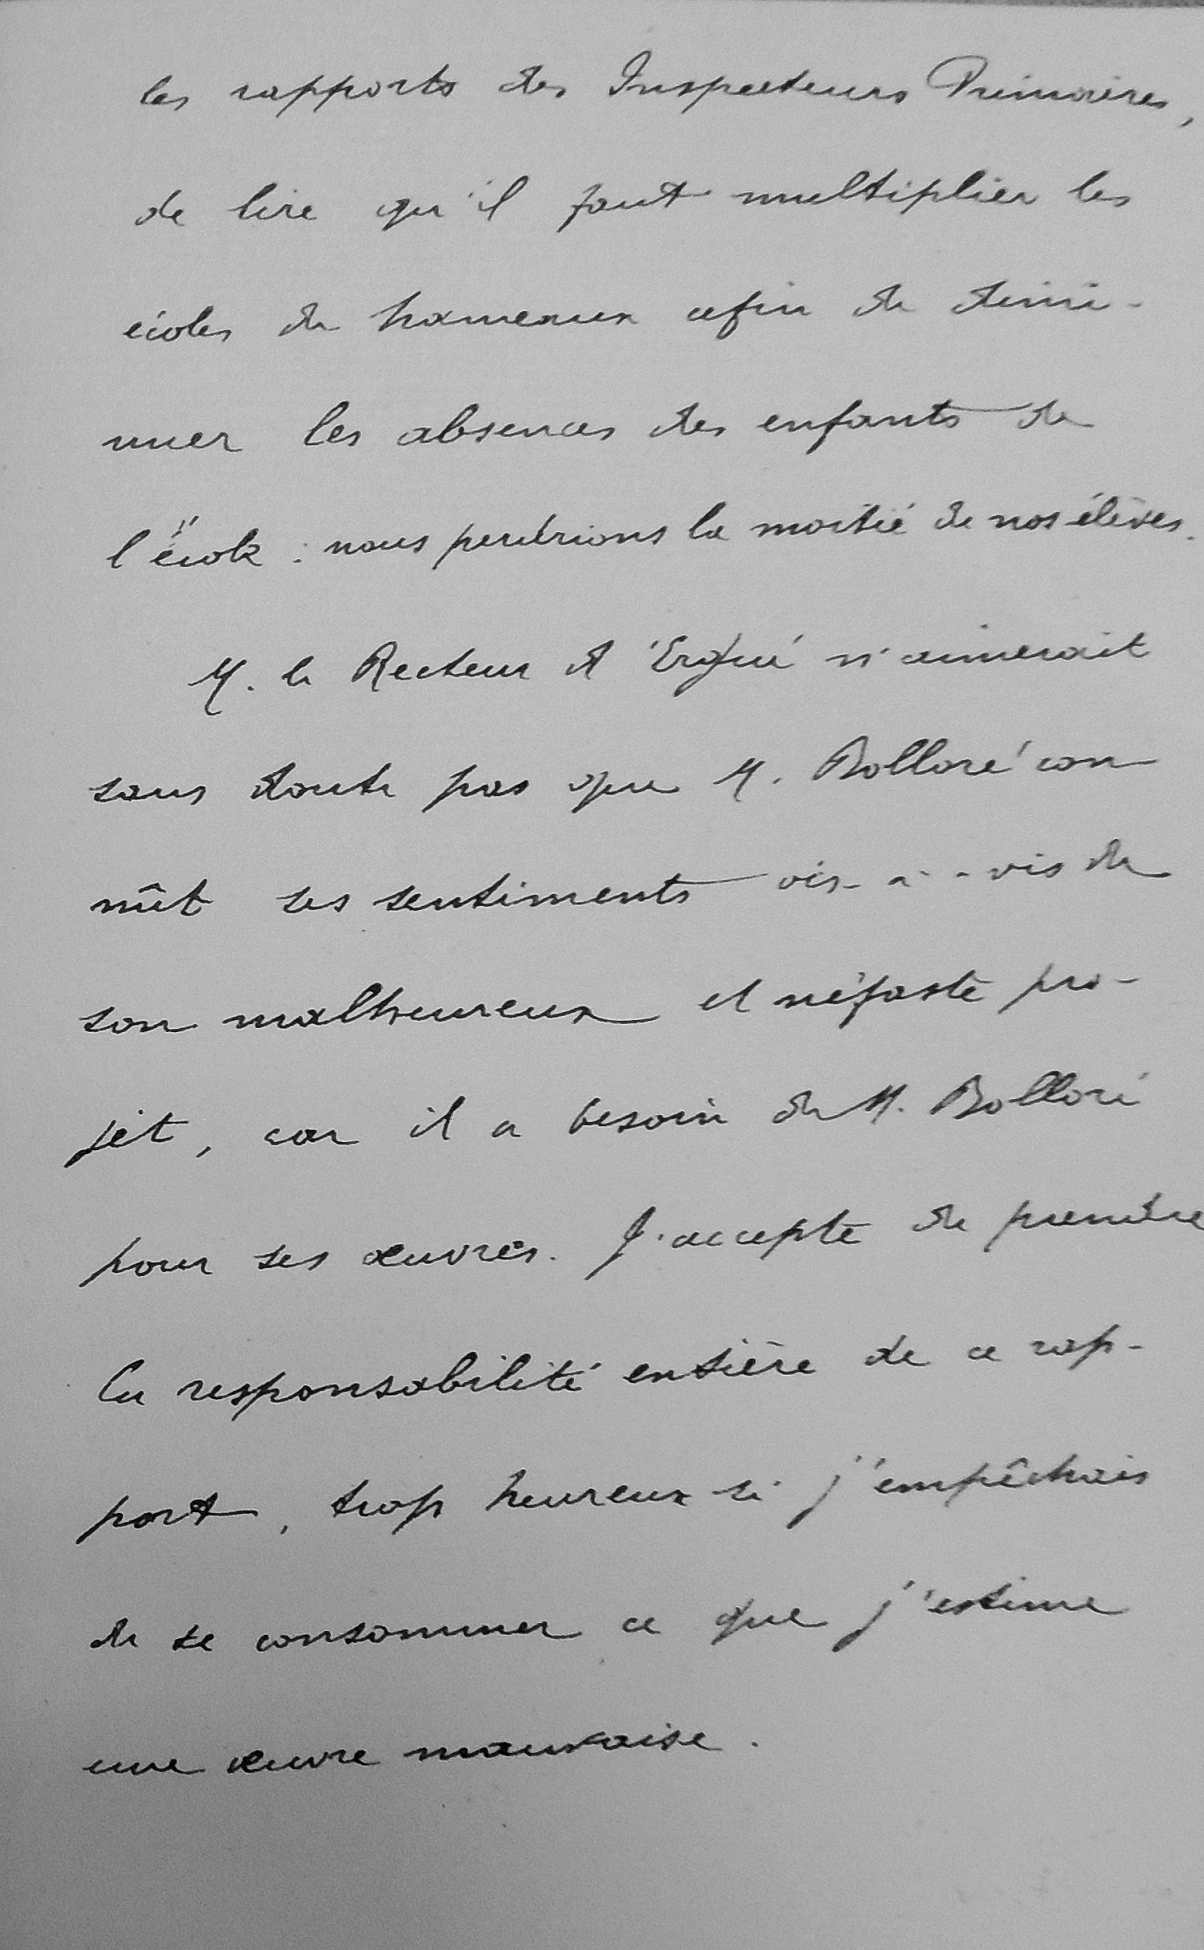 les rapports des Inspecteurs Primaires,
de lire qu'il faut multiplier les
écoles de hameaux afin de dimi-
nuer les absences des enfants de
l'école : nous perdrions la moitié de nos élèves.
M. le Recteur d'Ergué n'aimerait
sans doute pas que M. Bolloré con
nût ses sentiments vis-à-vis de
son malheureux et néfaste pro-
jet, car il a besoin de M. Bolloré
pour ses œuvres. J'accepte de prendre
la responsabilité entière de ce rap-
port, trop heureux si j'empêchais
de se consommer ce que j'estime
une œuvre mauvaise.